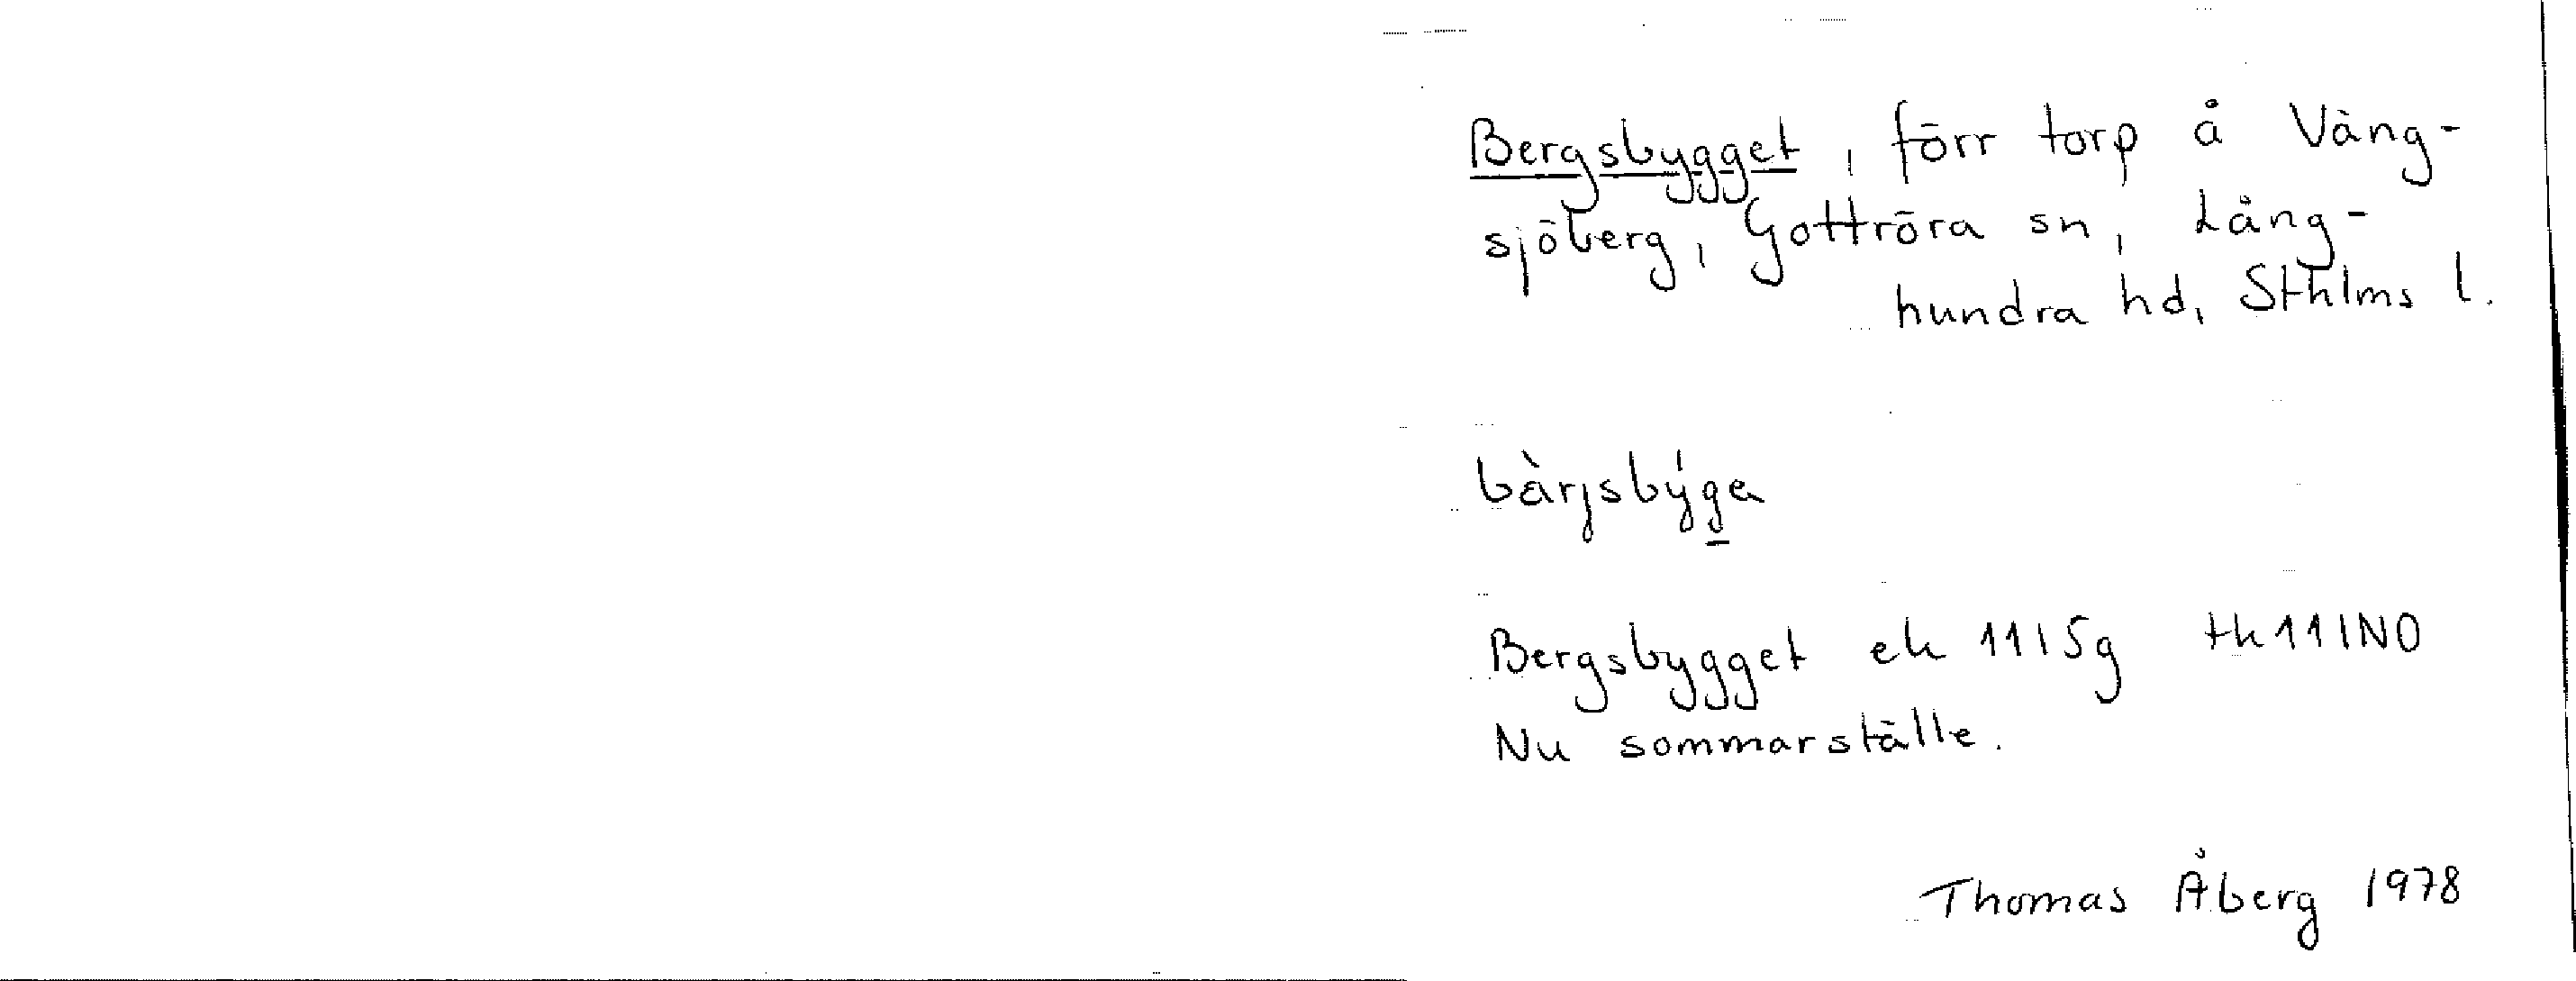 Bergsbygget, förr torp å Väng-
sjöberg, Gottröra sn, Lång-
hundra hd, Sthlms l.
bàrjsby̍ga
Bergsbygget ek 11I5g tk11INO
Nu sommarställe.
Thomas Åberg 1978